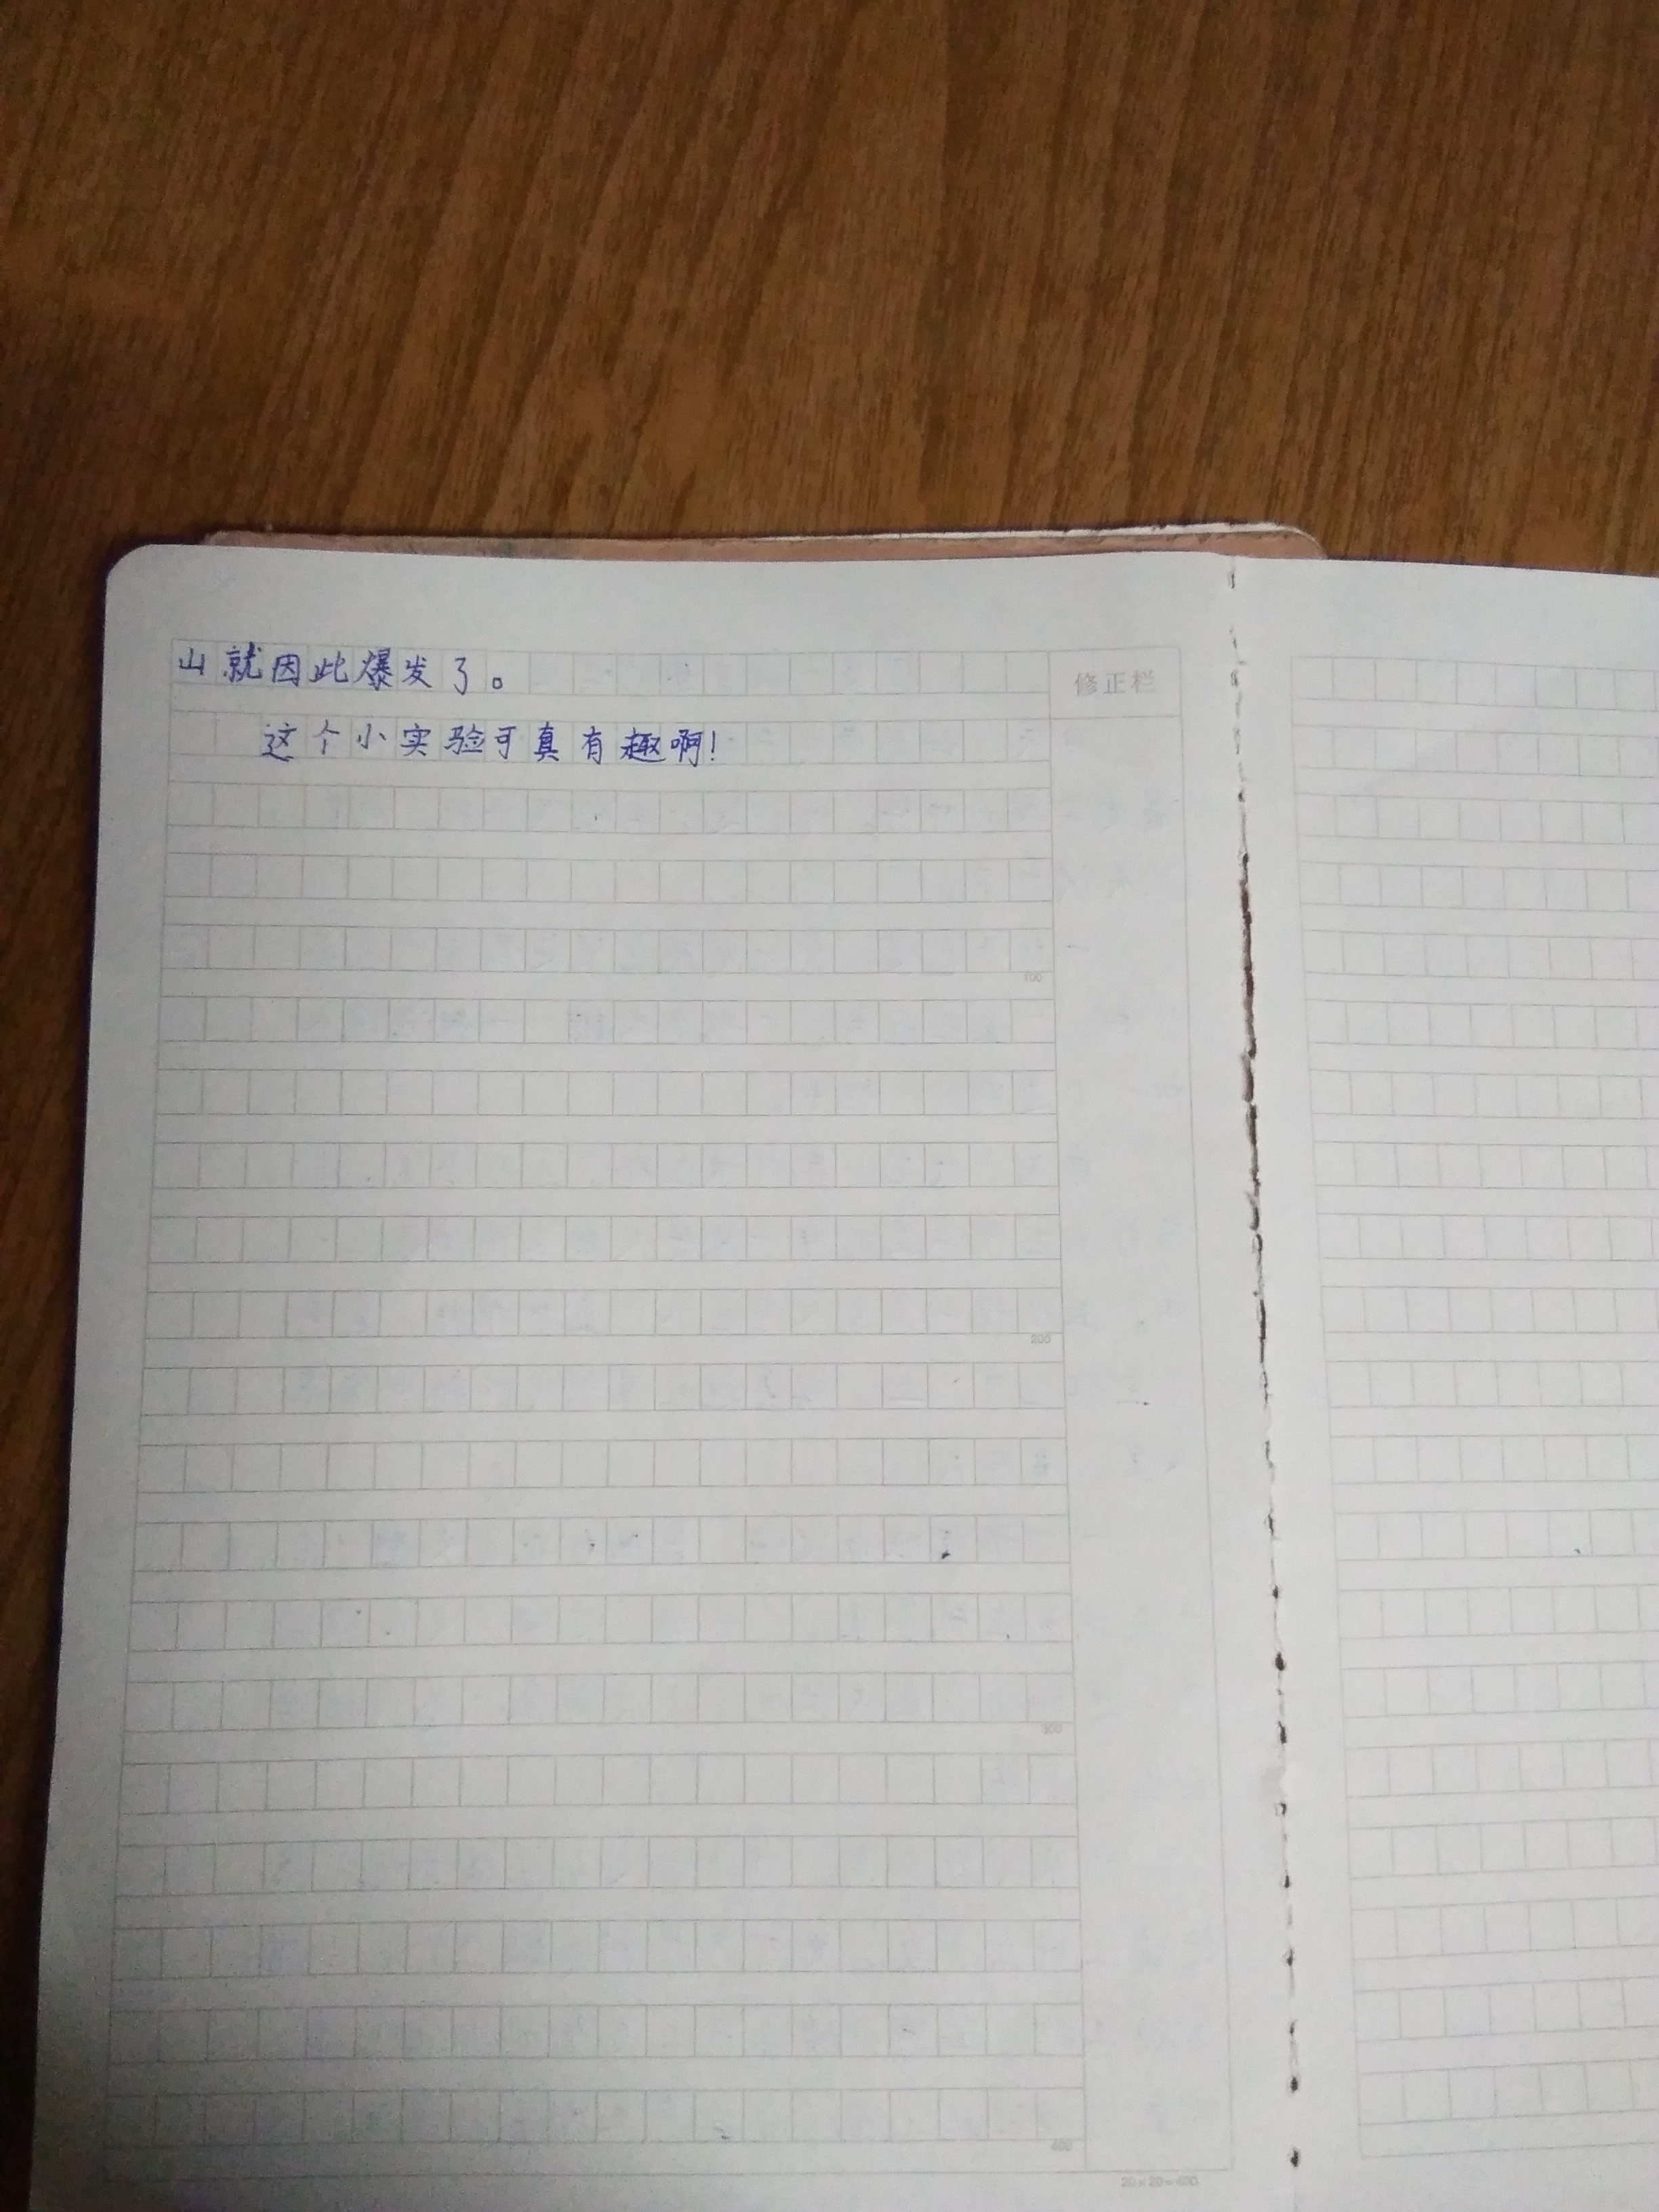 山就因此爆发了。
修正栏
这个小实验可真有趣啊！
100
200
300
400
20×20=400